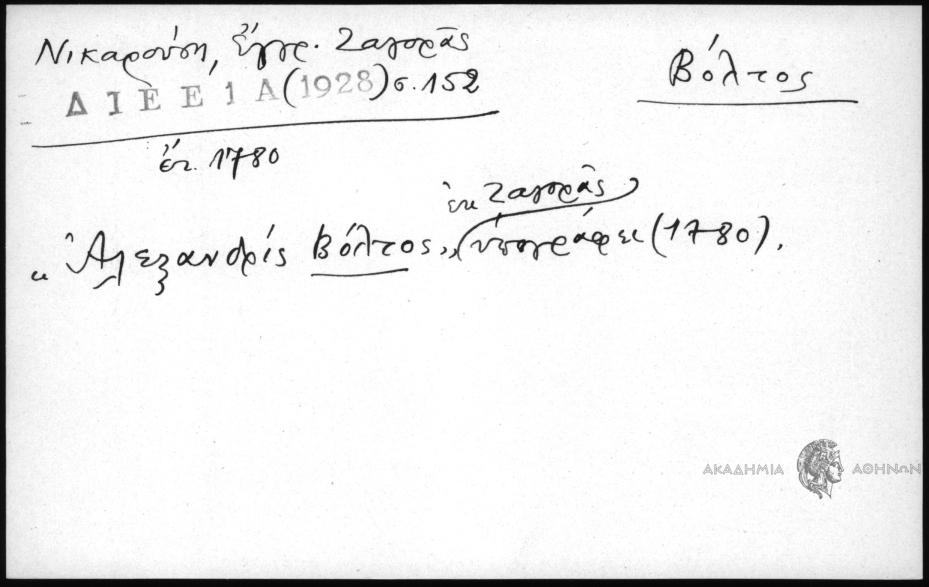 Νικαρούση, Ἔγγρ. Ζαγορᾶς
Δ Ι Ε Ε 1 Α (1928) σ. 152
Βόλτος
ἔτ. 1780
ἐκ Ζαγορᾶς
"Ἀλεξανδρίς Βόλτος" ὑπογράφει (1780).
ΑΚΑΔΗΜΙΑ ΑΘΗΝΩΝ